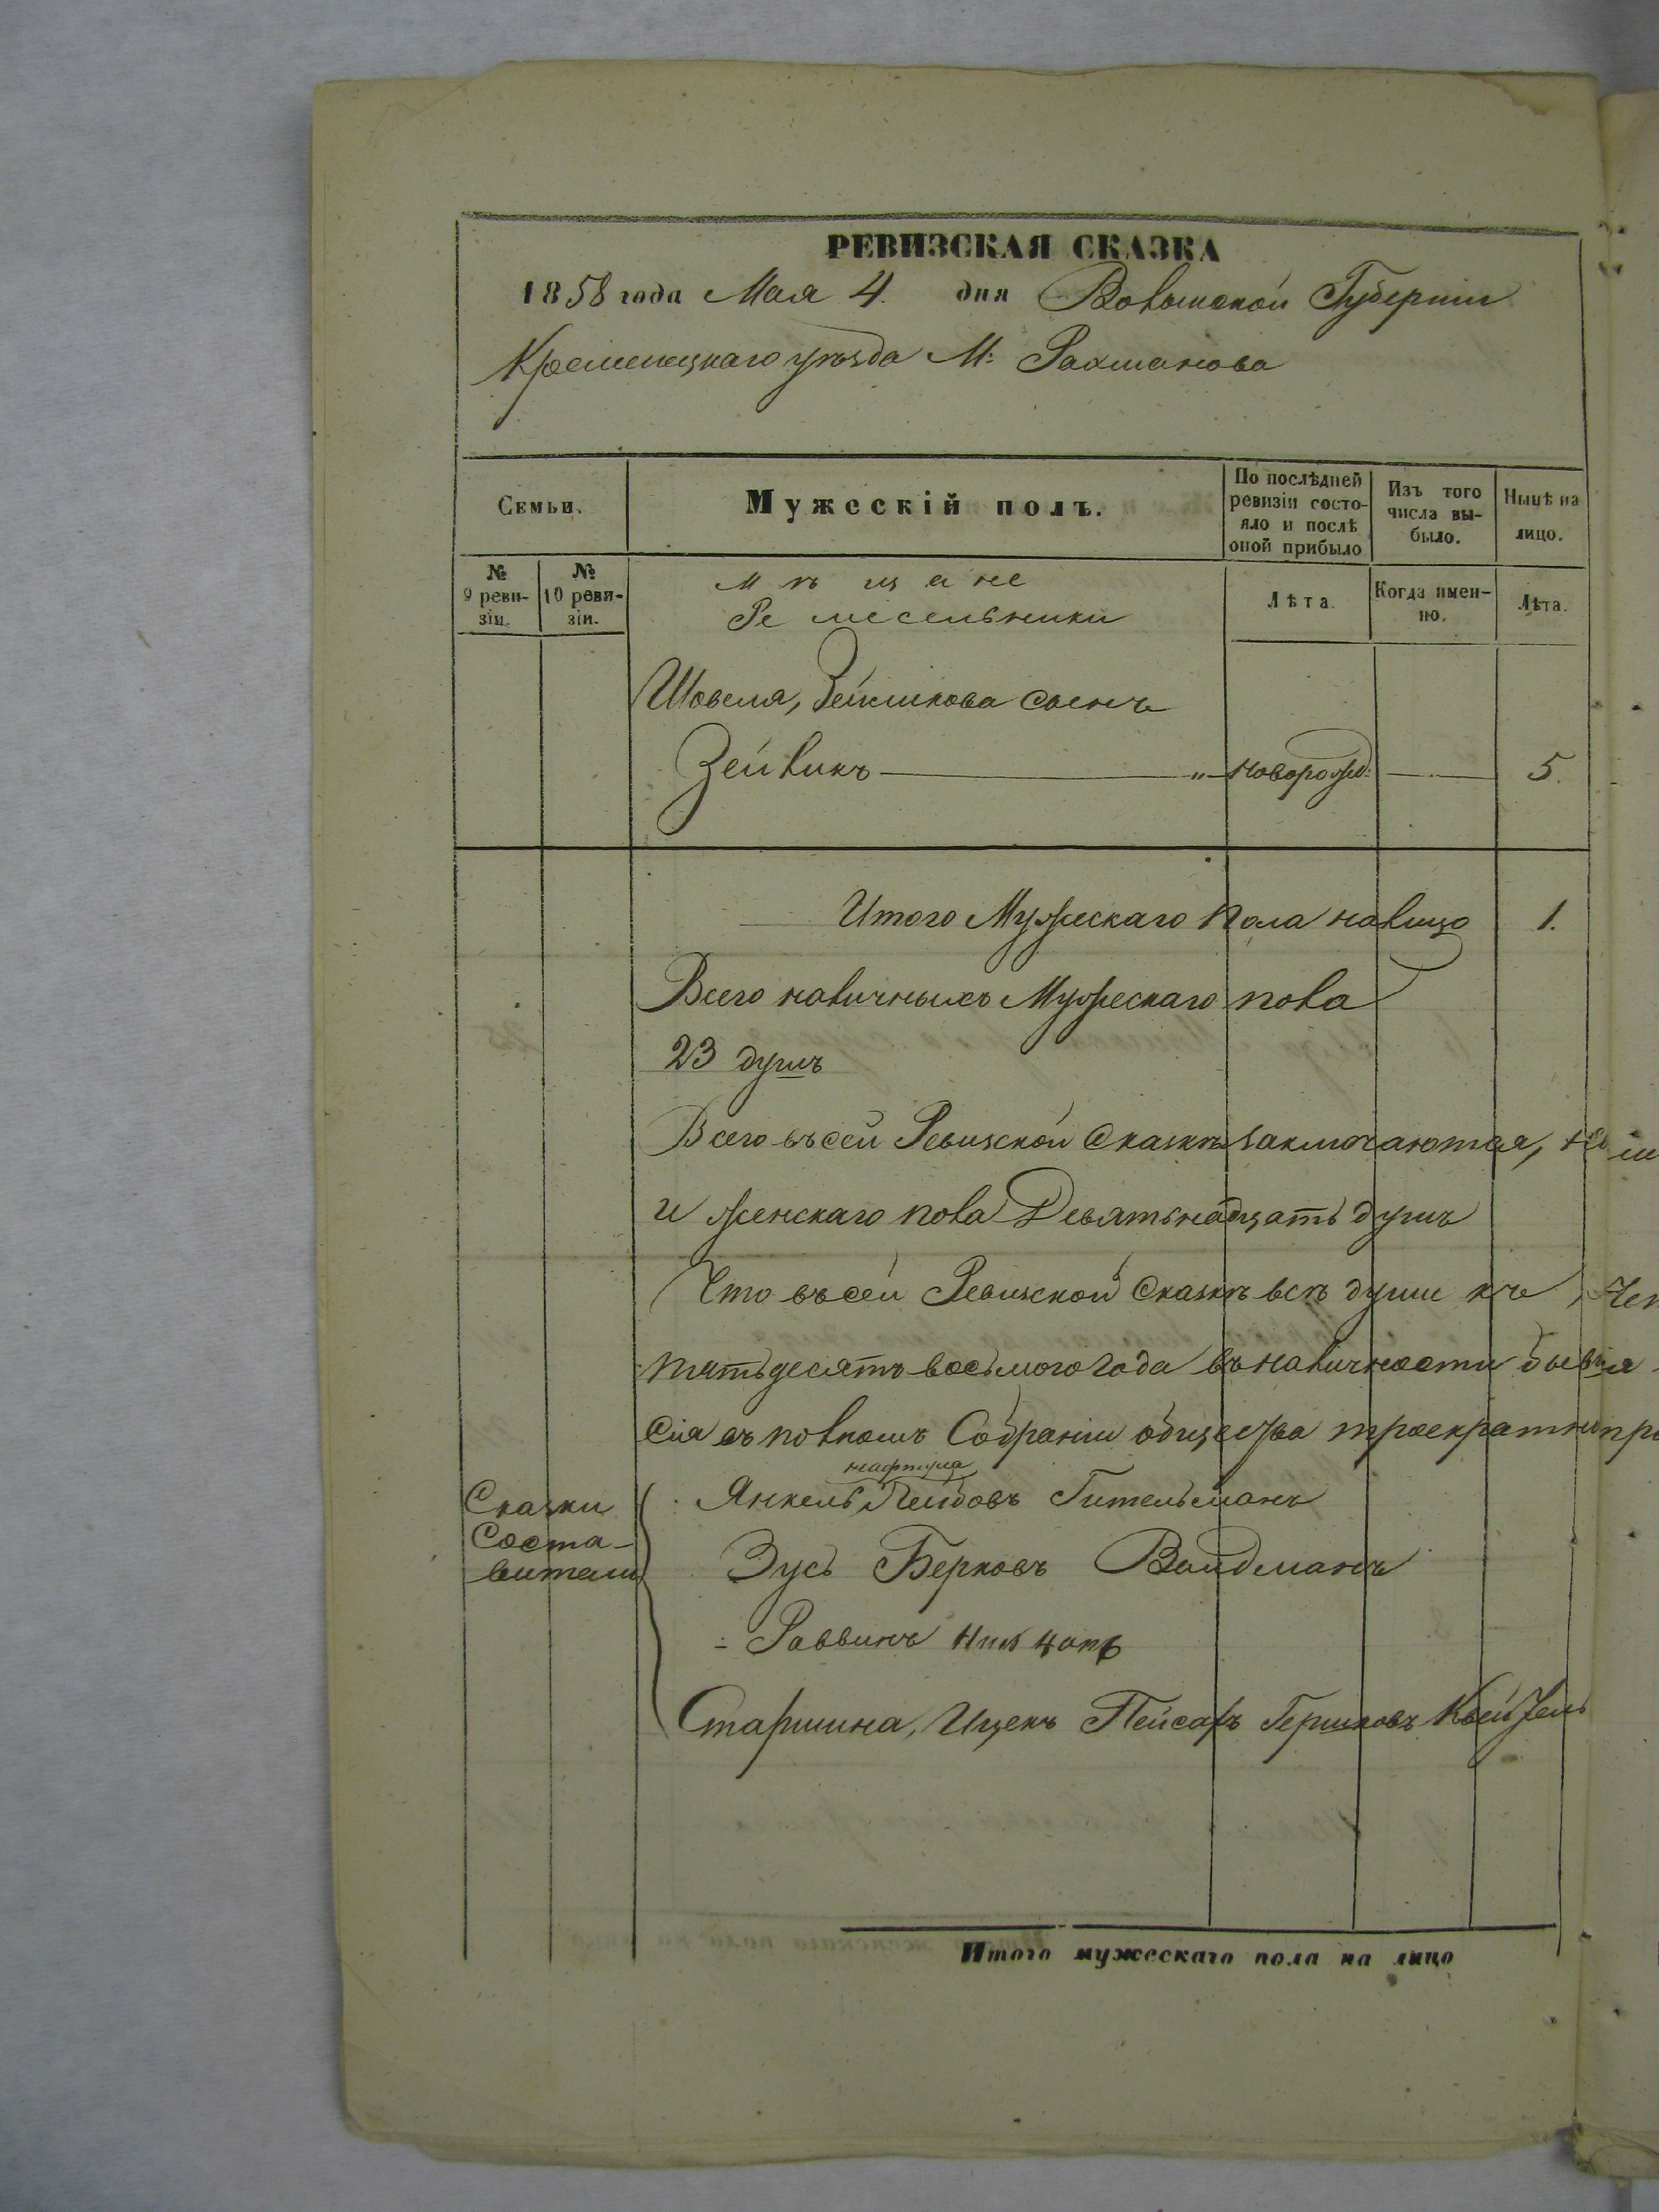 РЕВИЗСКАЯ СКАЗКА
1858 года Мая 4. дня Волынской Губерніи
Кременецкаго уѣзда М: Рахманова
Семьи.
Мужескій полъ.
По послѣдней ревизіи состояло и послѣ оной прибыло
Изъ того числа выбыло.
Нынѣ на лицо.
№ 9 ревизіи.
№ 10 ревизіи.
мѣщане
Ремесельники
Лѣта.
Когда именно.
Лѣта.
Шовеля, Зейликова сынъ
Зейликъ — " — новорожд: — 5.
Итого Мужескаго пола налицо 1.
Всего наличныхъ Мужескаго пола
23 душъ
Всего въ сей Ревизской Сказкѣ заключаются,
и женскаго пола Девятьнадцать душъ
Что въ сей Ревизской Сказкѣ всѣ души къ
пятьдесятъ восьмого года въ наличности бывшія
сія въ полномъ Собраніи общества троекратно
Сказки
Соста-
вители
нафтула
Янкель Лейбовъ Гительманъ
Зусь Берковъ Вайдманъ
Раввинъ
Старшина, Ицекъ Пейсахъ Гершковъ
Итого мужескаго пола на лицо